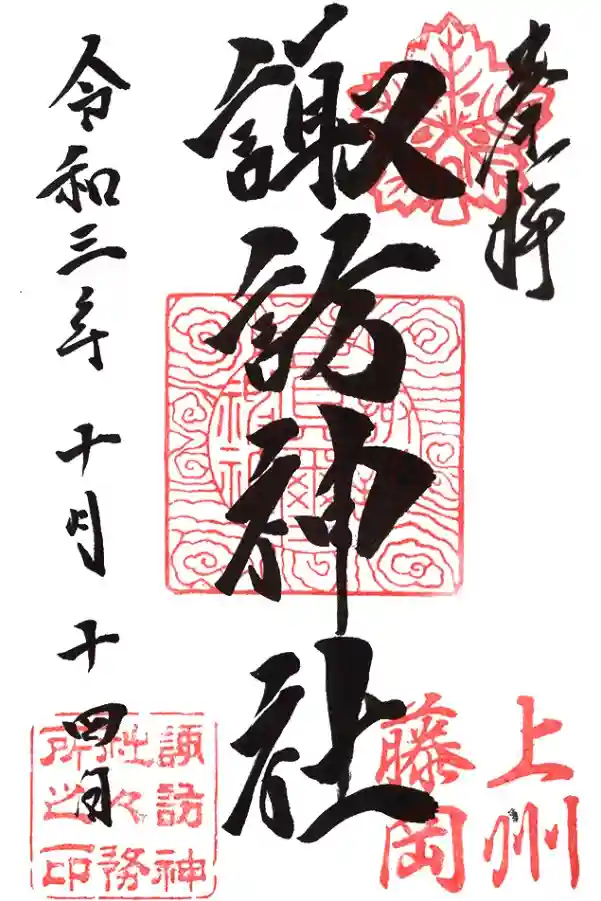 奉拝
上州
藤岡
諏訪神社
令和三年十月十四日
諏訪神
社々務
所之印